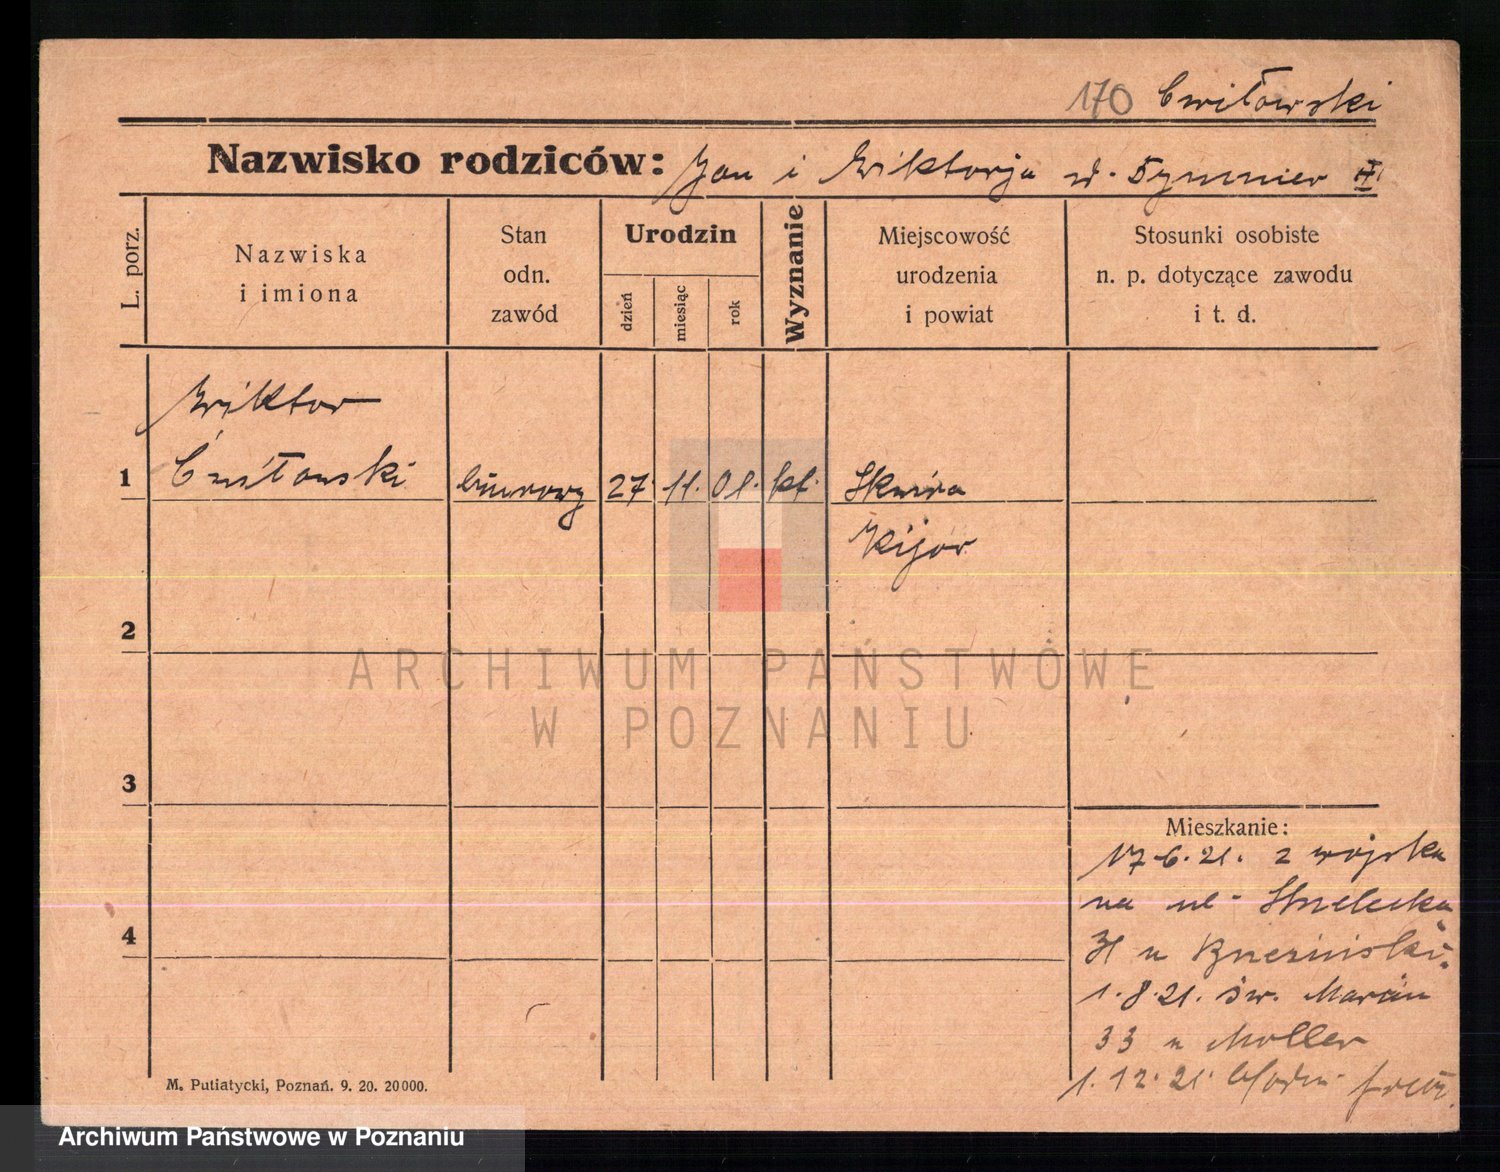 170 Cwiłowski
Nazwisko rodziców: Jan i Wiktorja
L. porz.
Nazwiska
i imiona
Stan
odn.
zawód
Urodzin
dzień
miesiąc
rok
Wyznanie
Miejscowość
urodzenia
i powiat
Stosunki osobiste
n. p. dotyczące zawodu
i t. d.
Wiktor
1 Cwiłowski biurowy 27. 11. 01. kt. Skwira
Kijów
2
3
4
Mieszkanie:
17.6.21. z wojska
na ul. Strzelecka
31 u
1.8.21. św. Marcin
33 u Moller
1.12.21.
M. Putiatycki, Poznań. 9. 20. 20000.
ARCHIWUM PAŃSTWOWE
W POZNANIU
Archiwum Państwowe w Poznaniu